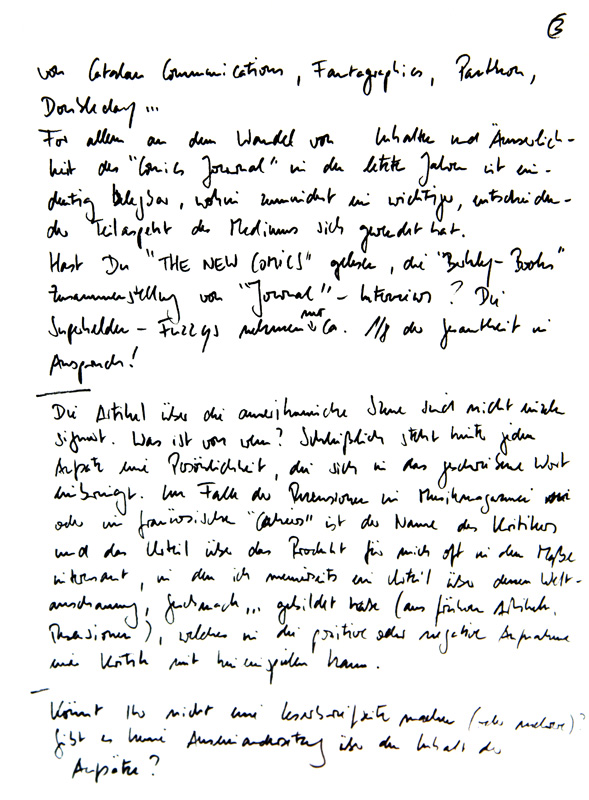 3
von Catalan Communications, Fantagraphics, Pantheon,
Doubleday ...
Vor allem an dem Wandel von Inhalte und Äusserlich-
keit des "Comics Journal" in den letzten Jahren ist ein-
deutig belegbar, wohin zumindest ein wichtiger, entscheiden-
der Teilaspekt des Mediums sich gewendet hat.
Hast Du "THE NEW COMICS" gelesen, die "Berkley-Books"
Zusammenstellung von "Journal"-Interviews? Die
Superhelden-Fuzzys nehmen nur ca. 1/8 der Gesamtheit in
Anspruch!
Die Artikel über die amerikanische Szene sind nicht einzeln
signiert. Was ist von wem? Schließlich steht hinter jedem
Aufsatz eine Persönlichkeit, die sich in das geschriebene Wort
einbringt. Im Falle der Rezensionen in Musikmagazinen
oder im französischen "Cahiers" ist der Name des Kritikers
und das Urteil über das Produkt für mich oft in dem Maße
interessant, in dem ich meinerseits ein Urteil über dessen Welt-
anschauung, Geschmack ... gebildet habe (aus früheren Artikeln,
Rezensionen), welches in die positive oder negative Aufnahme
einer Kritik mit hineinspielen kann.
Könnt Ihr nicht eine Leserbriefseite machen (oder mehrere)?
Gibt es keine Auseinandersetzung über den Inhalt der
Aufsätze?